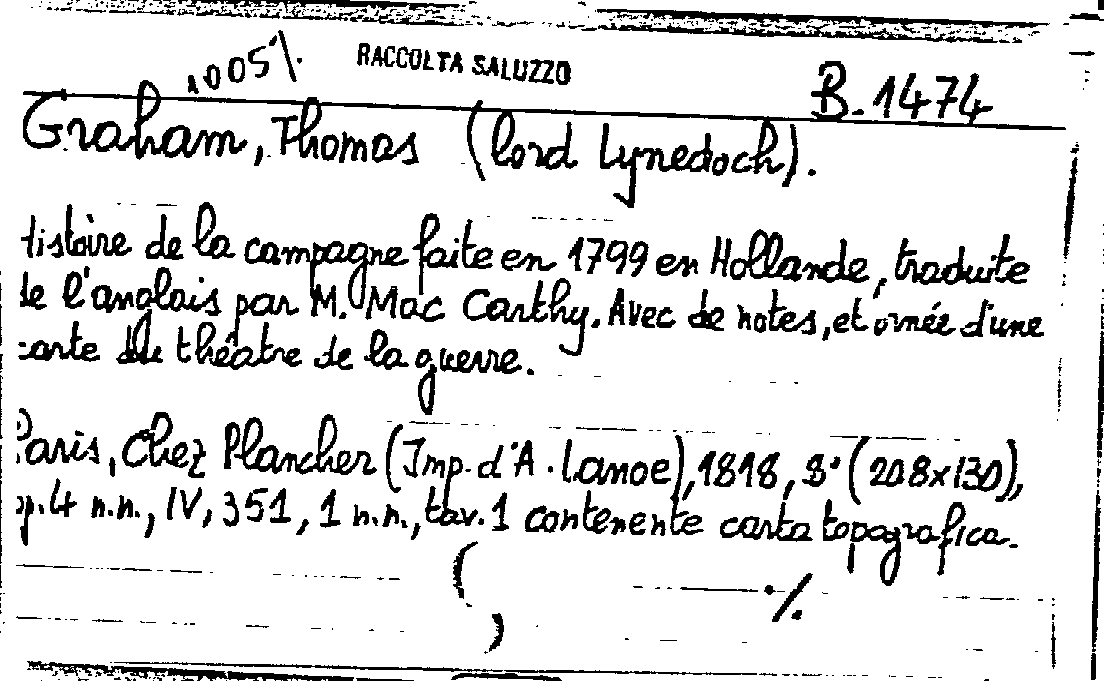 10051.
RACCOLTA SALUZZO
B. 1474
Graham, Thomas (lord Lynedoch).
Histoire de la campagne faite en 1799 en Hollande, traduite
de l'anglais par M. Mac Carthy. Avec de notes, et ornée d'une
carte du théatre de la guerre.
Paris, Chez Plancher (Imp. d'A. Lanoe), 1818, 8° (208x130),
pp. 4 n.n., IV, 351, 1 n.n., tav. 1 contenente carta topografica.
( ./.
)